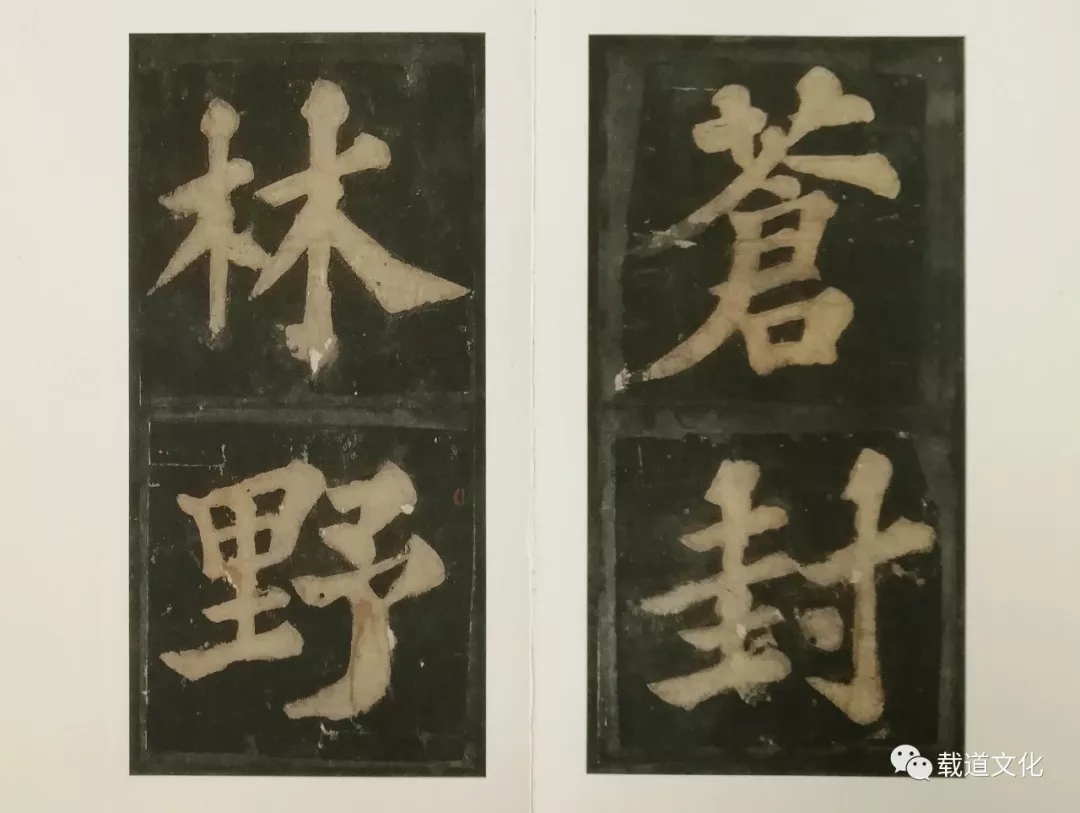 蒼封
林野
载道文化